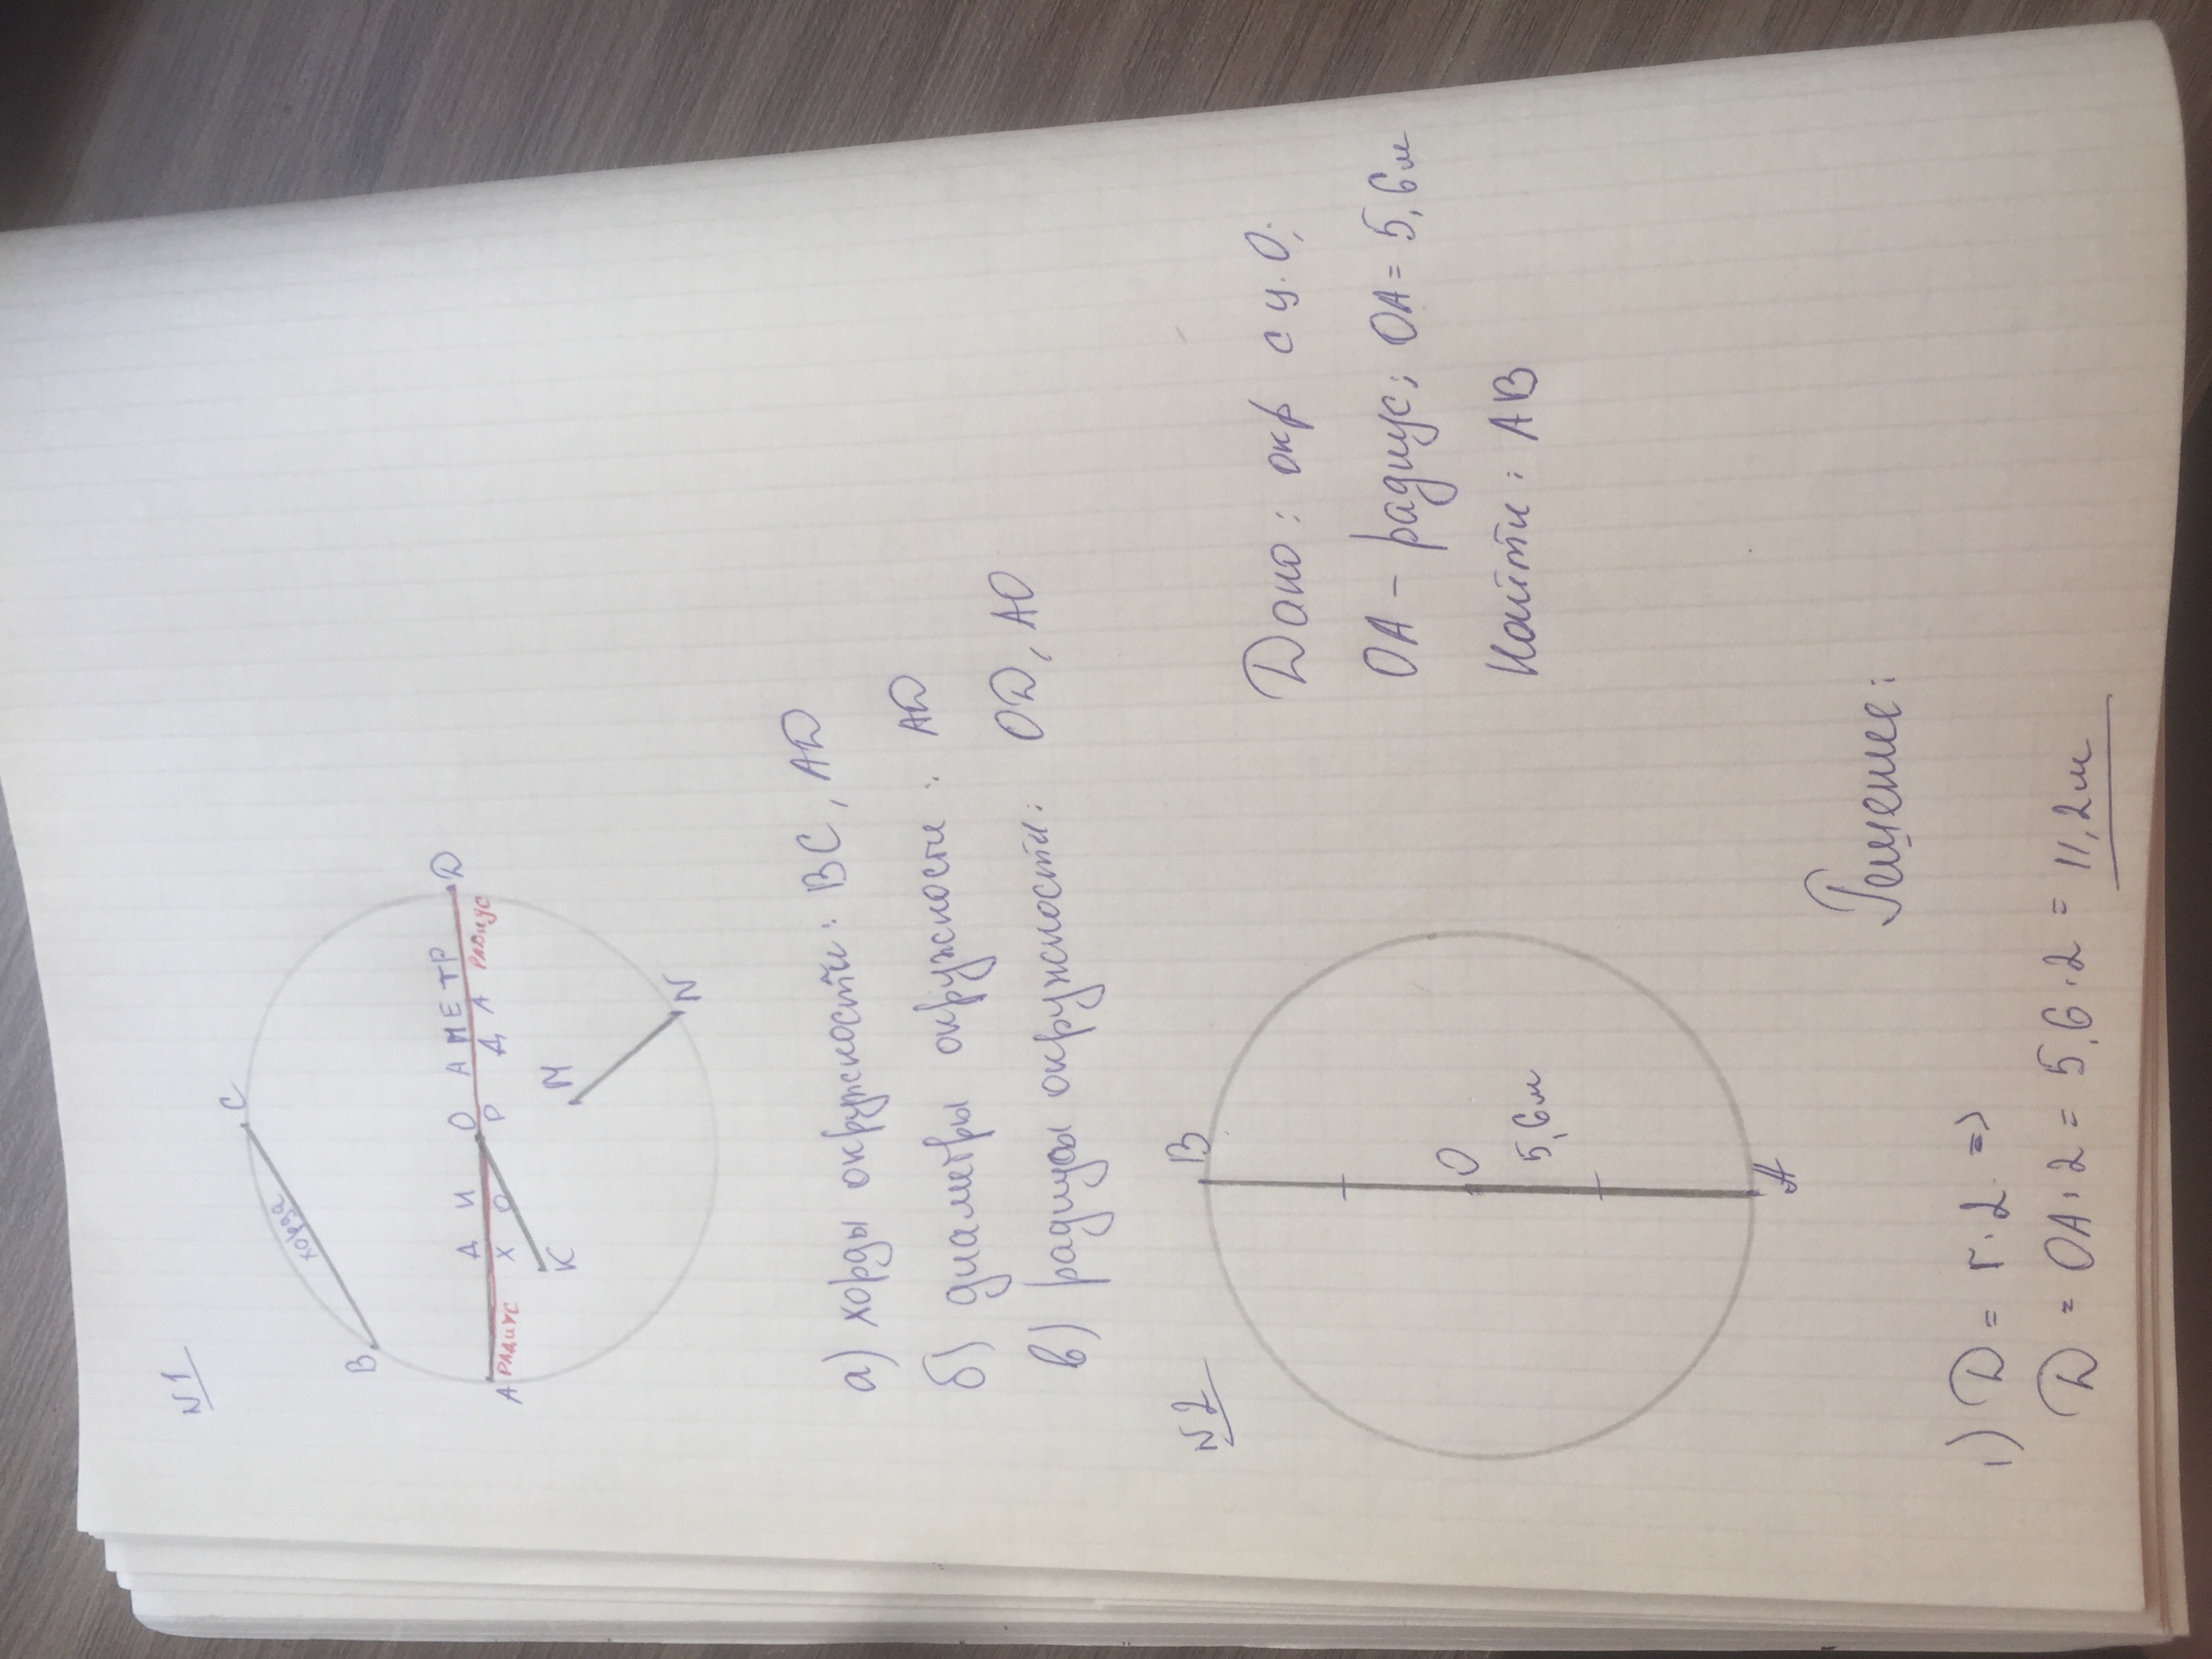 N1
C
B
хорда
ДИАМЕТР
A O D
РАДИУС ХОРДА РАДИУС
K M
N
а) хорды окружности: BC, AD
б) диаметры окружности: AD
в) радиусы окружности: OD, AO
N2
B
O
5,6м
A
Дано: окр с ц. O;
OA – радиус; OA = 5,6м
Найти: AB
Решение:
1) D = r · 2 =>
D = OA · 2 = 5,6 · 2 = 11,2м